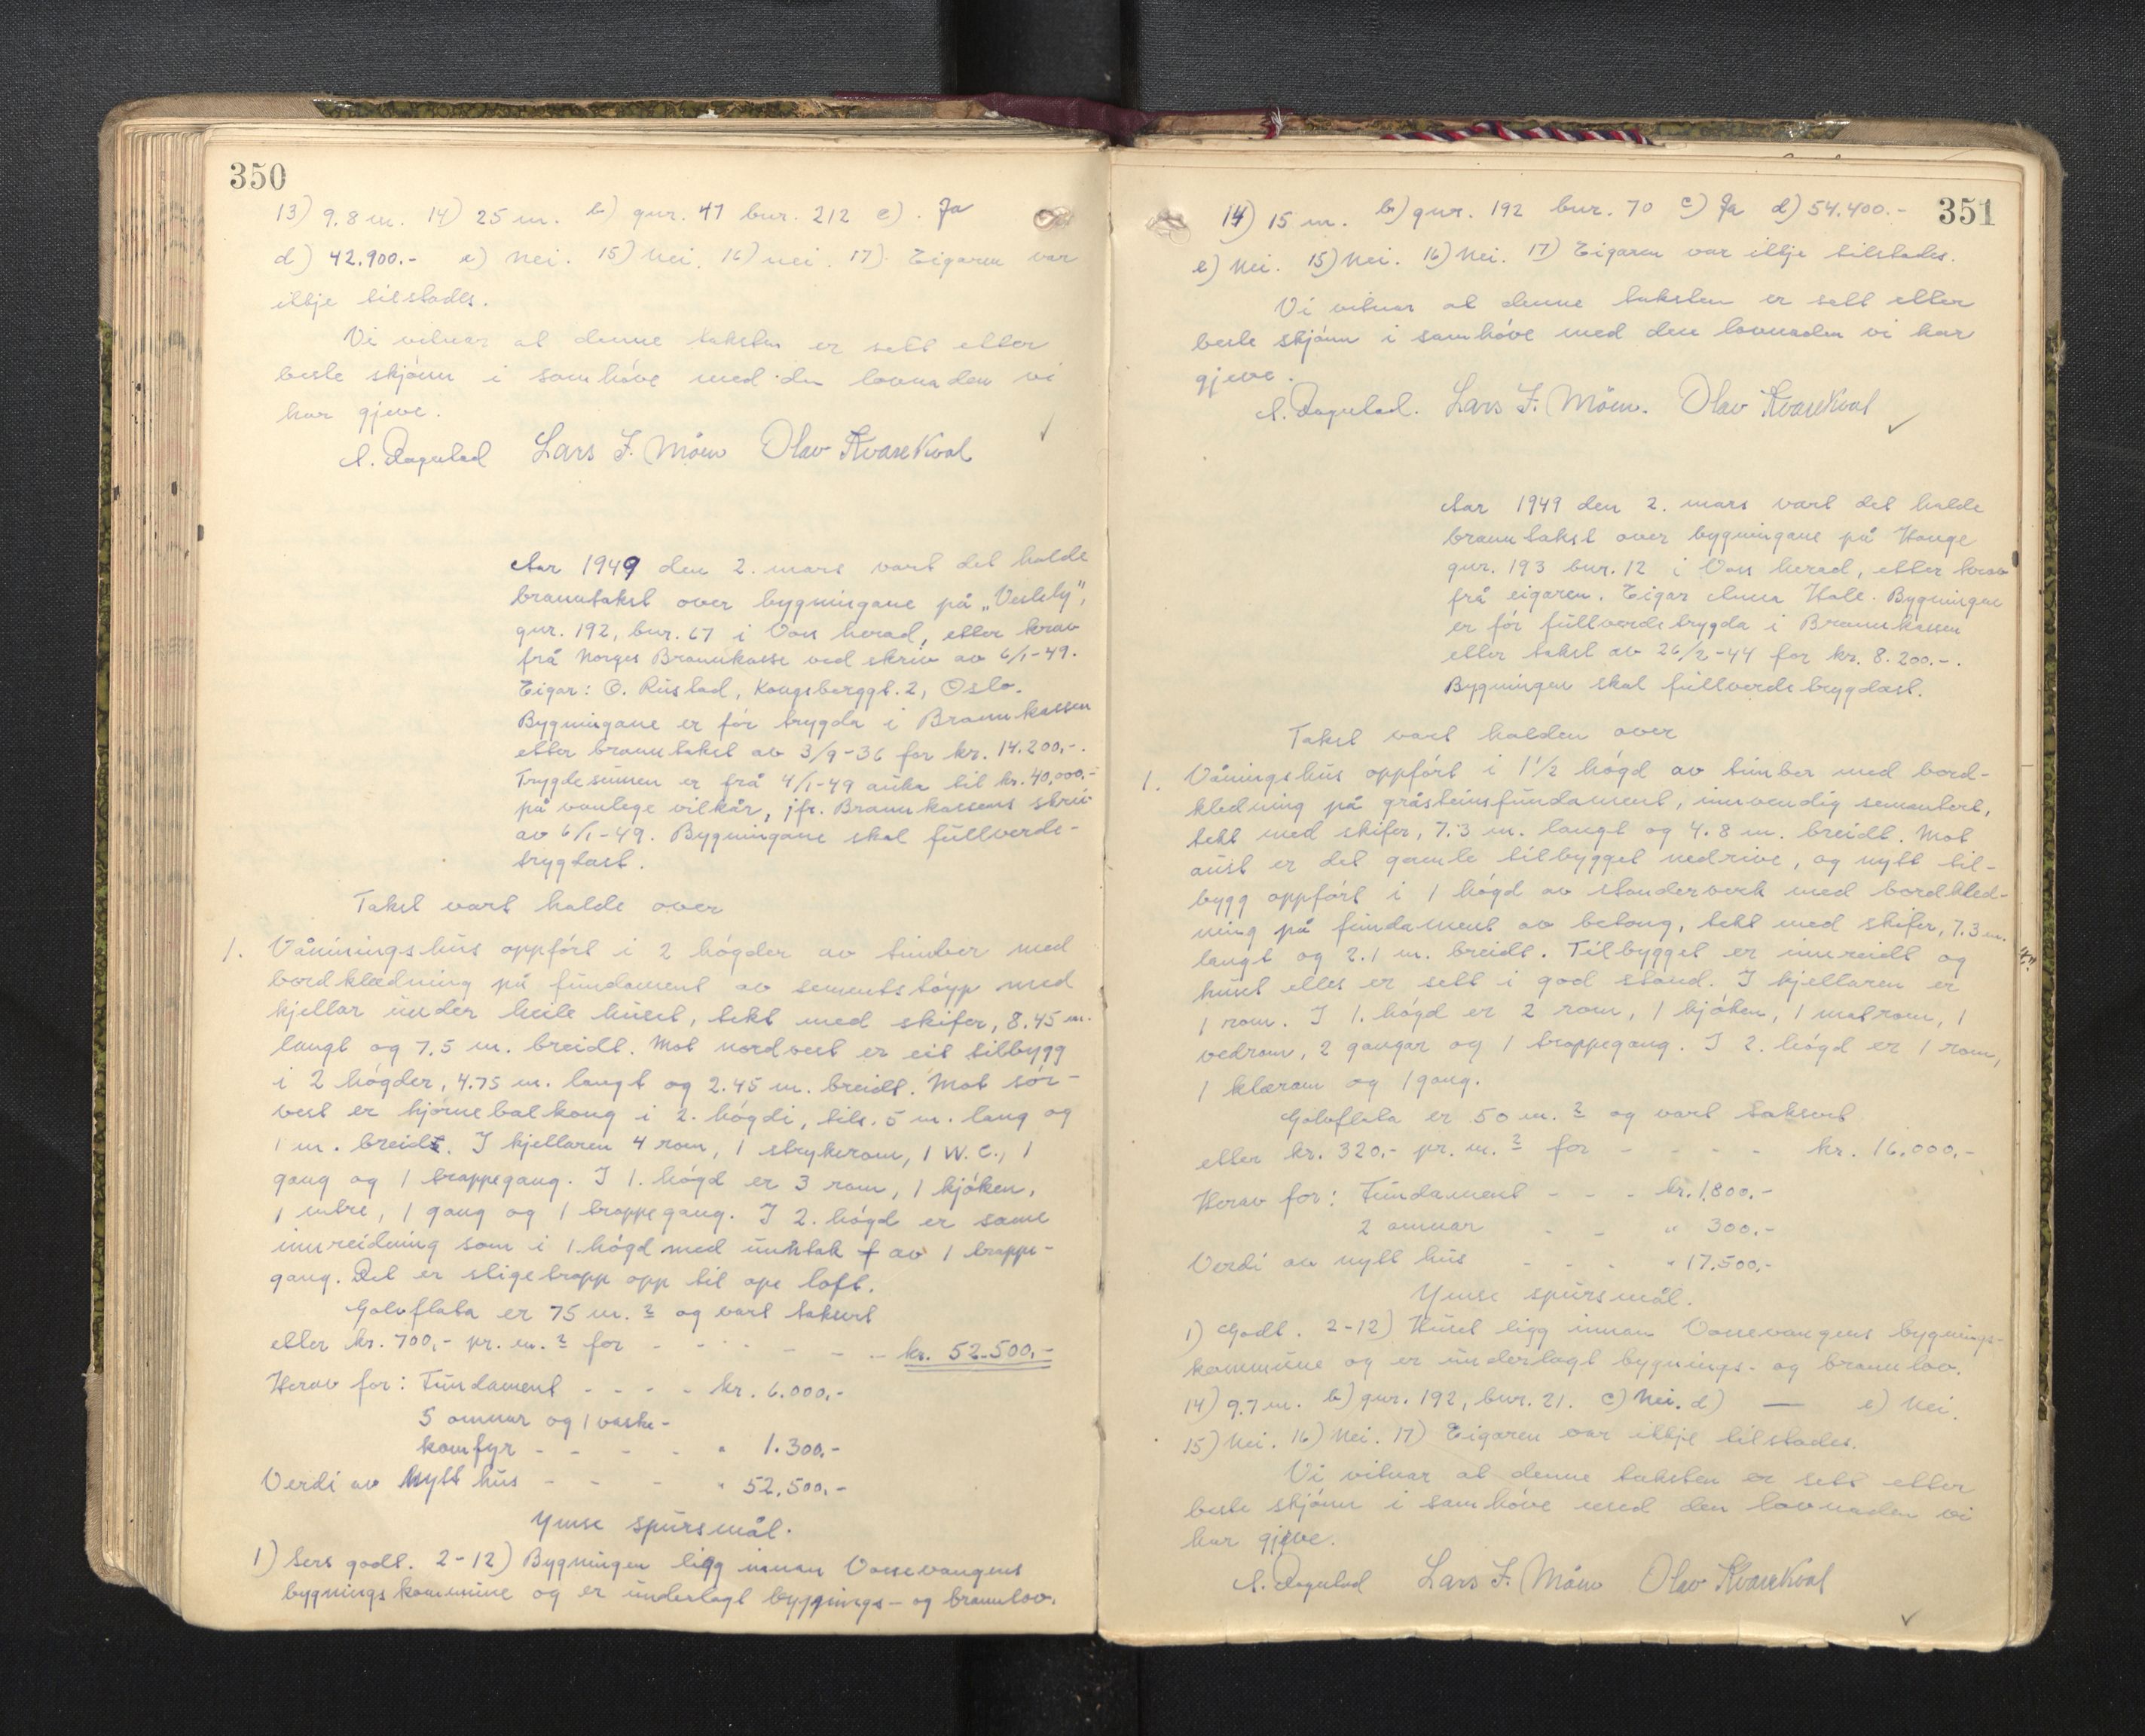 350
13) 9.8 m. 14) 25 m. b) gnr. 47 bnr. 212 c). Ja
d) 42.900.- e) Nei. 15) Nei. 16) nei. 17). Eigaren var
ikkje tilstades.
Vi vitnar at denne taksten er sett etter
beste skjönn i samhöve med den lovnaden vi
har gjeve.
Lars J. Möen Olav Kvarekval
Aar 1949 den 2. mars vart det halde
branntakst over bygningane på „Vestly",
gnr. 192, bnr. 67 i Voss herad, etter krav
frå Norges Brannkasse ved skriv av 6/1-49.
Eigar: O. Rustad, Kongsberggt. 2, Oslo.
Bygningane er för trygda i Brannkassen
etter branntakst av 3/9-36 for kr. 14.200,-.
Trygdesummen er frå 4/1-49 auka til kr. 40,000.-
på vanlege vilkår, jfr. Brannkassens skriv
av 6/1-49. Bygningane skal fullverde-
trygdast.
Takst vart halde over
1. Våningshus oppfört i 2 högder av timber med
bordklædning på fundament av sementstöyp med
kjellar under heile huset, tekt med skifer, 8.45 m.
langt og 7.5 m. breidt. Mot nordvest er eit tilbygg
i 2 högder, 4.75 m. langt og 2.45 m. breidt. Mot sör-
vest er hjörnebalkong i 2. högdi, tils. 5 m. lang og
1 m. breidt. I kjellaren 4 rom, 1 strykerom, 1 W.C., 1
gang og 1 trappegang. I 1. högd er 3 rom, 1 kjöken,
1 entre, 1 gang og 1 trappegang. I 2. högd er same
innreidning som i 1. högd med unntak f av 1 trappe-
gang. Det er stigetrapp opp til ope loft.
Golvflata er 75 m.2 og vart taksert
etter kr. 700,- pr. m.2 for - - - - - - kr. 52.500,-
Herav for: Fundament - - - - kr. 6.000,-
5 omnar og 1 vaske-
komfyr - - - - " 1.300,-
Verdi av nytt hus - - - " 52,500,-
Ymse spursmål.
1) Sers godt. 2-12) Bygningen ligg innan Vossevangens
bygningskommune og er underlagt bygnings- og brannlov.
351
14) 15 m. b) gnr. 192 bnr. 70 c) Ja d) 54.400.-
e) Nei. 15) Nei. 16) Nei. 17) Eigaren var ikkje tilstades.
Vi vitnar at denne taksten er sett etter
beste skjönn i samhöve med den lovnaden vi har
gjeve.
Lars J. Möen. Olav Kvarekval
Aar 1949 den 2. mars vart det halde
branntakst over bygningane på Hauge
gnr. 193 bnr. 12 i Voss herad, etter krav
frå eigaren. Eigar Anna Hole. Bygningen
er för fullverdetrygda i Brannkassen
etter takst av 26/2-44 for kr. 8.200.-.
Bygningen skal fullverdetrygdast.
Takst vart halden over
1. Våningshus oppfört i 1 1/2 högd av timber med bord-
kledning på gråsteinsfundament, innvendig sementert,
tekt med skifer, 7.3 m. langt og 4.8 m. breidt. Mot
aust er det gamle tilbygget nedrive, og nytt til-
bygg oppfört i 1 högd av standerverk med bordkled-
ning på fundament av betong, tekt med skifer, 7.3 m.
langt og 2.1 m. breidt. Tilbygget er innreidt og
huset elles er sett i god stand. I kjellaren er
1 rom. I 1. högd er 2 rom, 1 kjöken, 1 matrom, 1
vedrom, 2 gangar og 1 trappegang. I 2. högd er 1 rom,
1 klerom og 1 gang.
Golvflata er 50 m.2 og vart taksert
etter kr. 320,- pr. m.2 for - - - - kr. 16.000,-
Herav for: Fundament - - - kr. 1.800.-
2 omnar - - " 300.-
Verdi av nytt hus - - - " 17.500,-
Ymse spursmål.
1) Godt. 2-12) Huset ligg innan Vossevangens bygnings-
kommune og er underlagt bygnings- og brannlov.
14) 9.7 m. b) gnr. 192, bnr. 21. c) Nei. d) — e) Nei.
15) Nei. 16) Nei. 17) Eigaren var ikkje tilstades.
Vi vitnar at denne taksten er sett etter
beste skjönn i samhöve med den lovnaden vi
har gjeve.
Lars J. Möen Olav Kvarekval